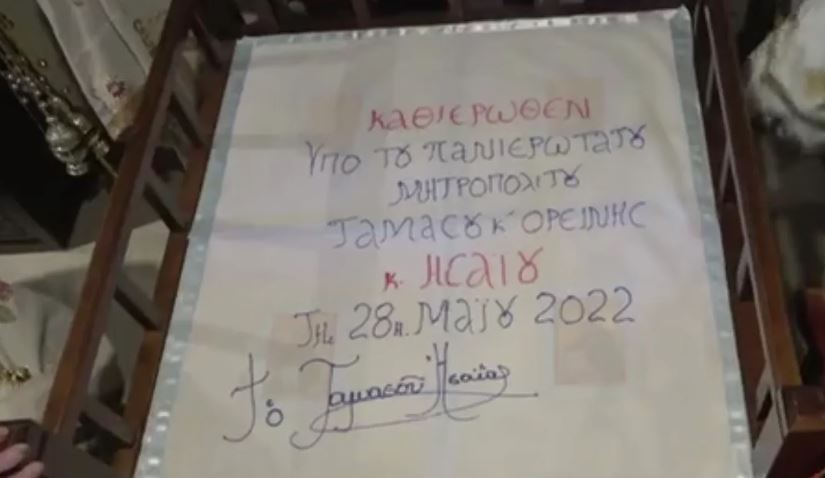 ΚΑΘΙΕΡΩΘΕΝ
ΥΠΟ ΤȢ ΠΑΝΙΕΡΩΤΑΤȢ
ΜΗΤΡΟΠΟΛΙΤȢ
ΤΑΜΑCȢ Κ' ΟΡΕΙΝΗC
κ. ΗCΑΙȢ
ΤΗ. 28Η. ΜΑΪȢ 2022
† ὁ Ταμασοῦ Ἡσαΐας